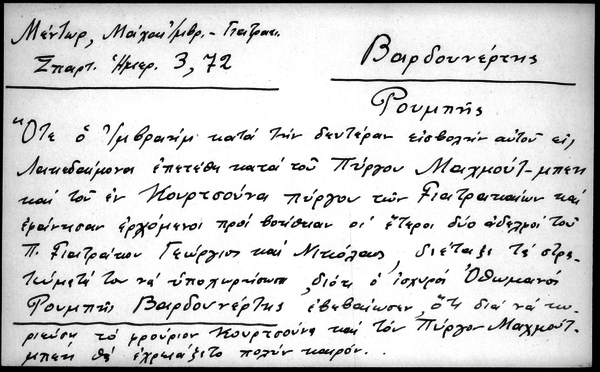 Μέντωρ, Μάχαι Ἰμβρ.- Γιατρακ.
Σπαρτ. Ἡμερ. 3, 72
Βαρδουνέρτης
Ρουμπῆς
"Ὅτε ὁ Ἰμβραήμ κατά τήν δευτέραν εἰσβολήν αὐτοῦ εἰς
Λακεδαίμονα ἐπετέθη κατά τοῦ Πύργου Μαχμούτ-μπεη
καί τοῦ ἐν Κουρτσούνα πύργου τῶν Γιατρακαίων καί
ἐφαίνησαν ἐρχόμενοι πρός βοήθειαν οἱ ἕτεροι δύο ἀδελφοί τοῦ
Π. Γιατράκου Γεώργιος καί Νικόλαος, διέταξε τά στρα-
τεύματά του νά ὑποχωρήσωσι, διότι ὁ ἰσχυρός Ὀθωμανός
Ρουμπῆς Βαρδουνέρτης ἐβεβαίωσεν, ὅτι διά νά κυ-
ριεύση τό φρούριον Κουρτσούνα καί τόν Πύργον Μαχμούτ-
μπεη θά ἐχρειάζετο πολύν καιρόν.